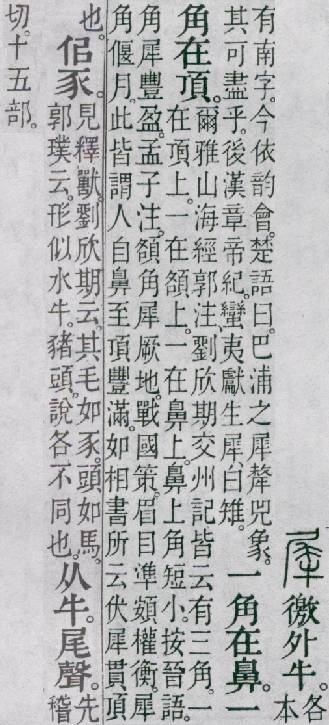 犀 徼外牛。各本
有南字。今依韵會。楚語曰。巴浦之犀犛兕象。
其可盡乎。後漢章帝紀。蠻夷獻生犀白雉。
一角在鼻。一
角在頂。
爾雅山海經郭注、劉欣期交州記皆云有三角。一
在頂上。一在頟上。一在鼻上。鼻上角短小。按晉語。
角犀豐盈。孟子注。頟角犀厥地。戰國策。眉目準頞權衡。犀
角偃月。此皆謂人自鼻至頂豐滿。如相書所云伏犀貫頂
也。
佀豕。
見釋獸。劉欣期云。其毛如豕。頭如馬。
郭璞云。形似水牛。豬頭。說各不同也。
从牛。尾聲。
先稽
切。十五部。